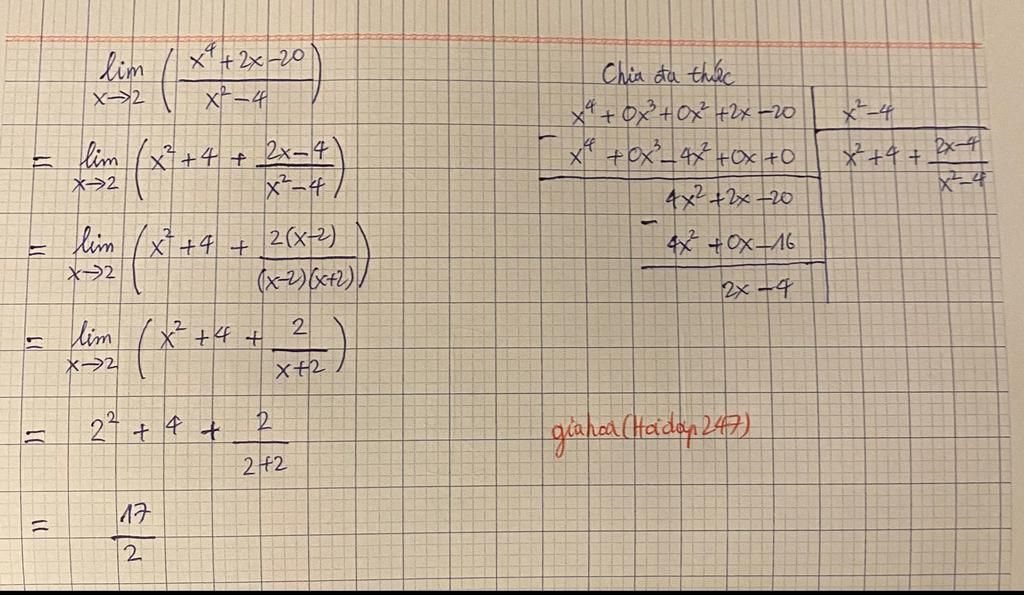 lim x→2 ( (x⁴ + 2x - 20) / (x² - 4) )
= lim x→2 ( x² + 4 + (2x - 4) / (x² - 4) )
= lim x→2 ( x² + 4 + 2(x-2) / (x-2)(x+2) )
= lim x→2 ( x² + 4 + 2 / (x+2) )
= 2² + 4 + 2 / (2+2)
= 17 / 2
Chia đa thức
x⁴ + 0x³ + 0x² + 2x - 20 | x² - 4
- x⁴ + 0x³ - 4x² + 0x + 0 | x² + 4 + (2x - 4) / (x² - 4)
4x² + 2x - 20
- 4x² + 0x - 16
2x - 4
giahoa (Hoidap247)